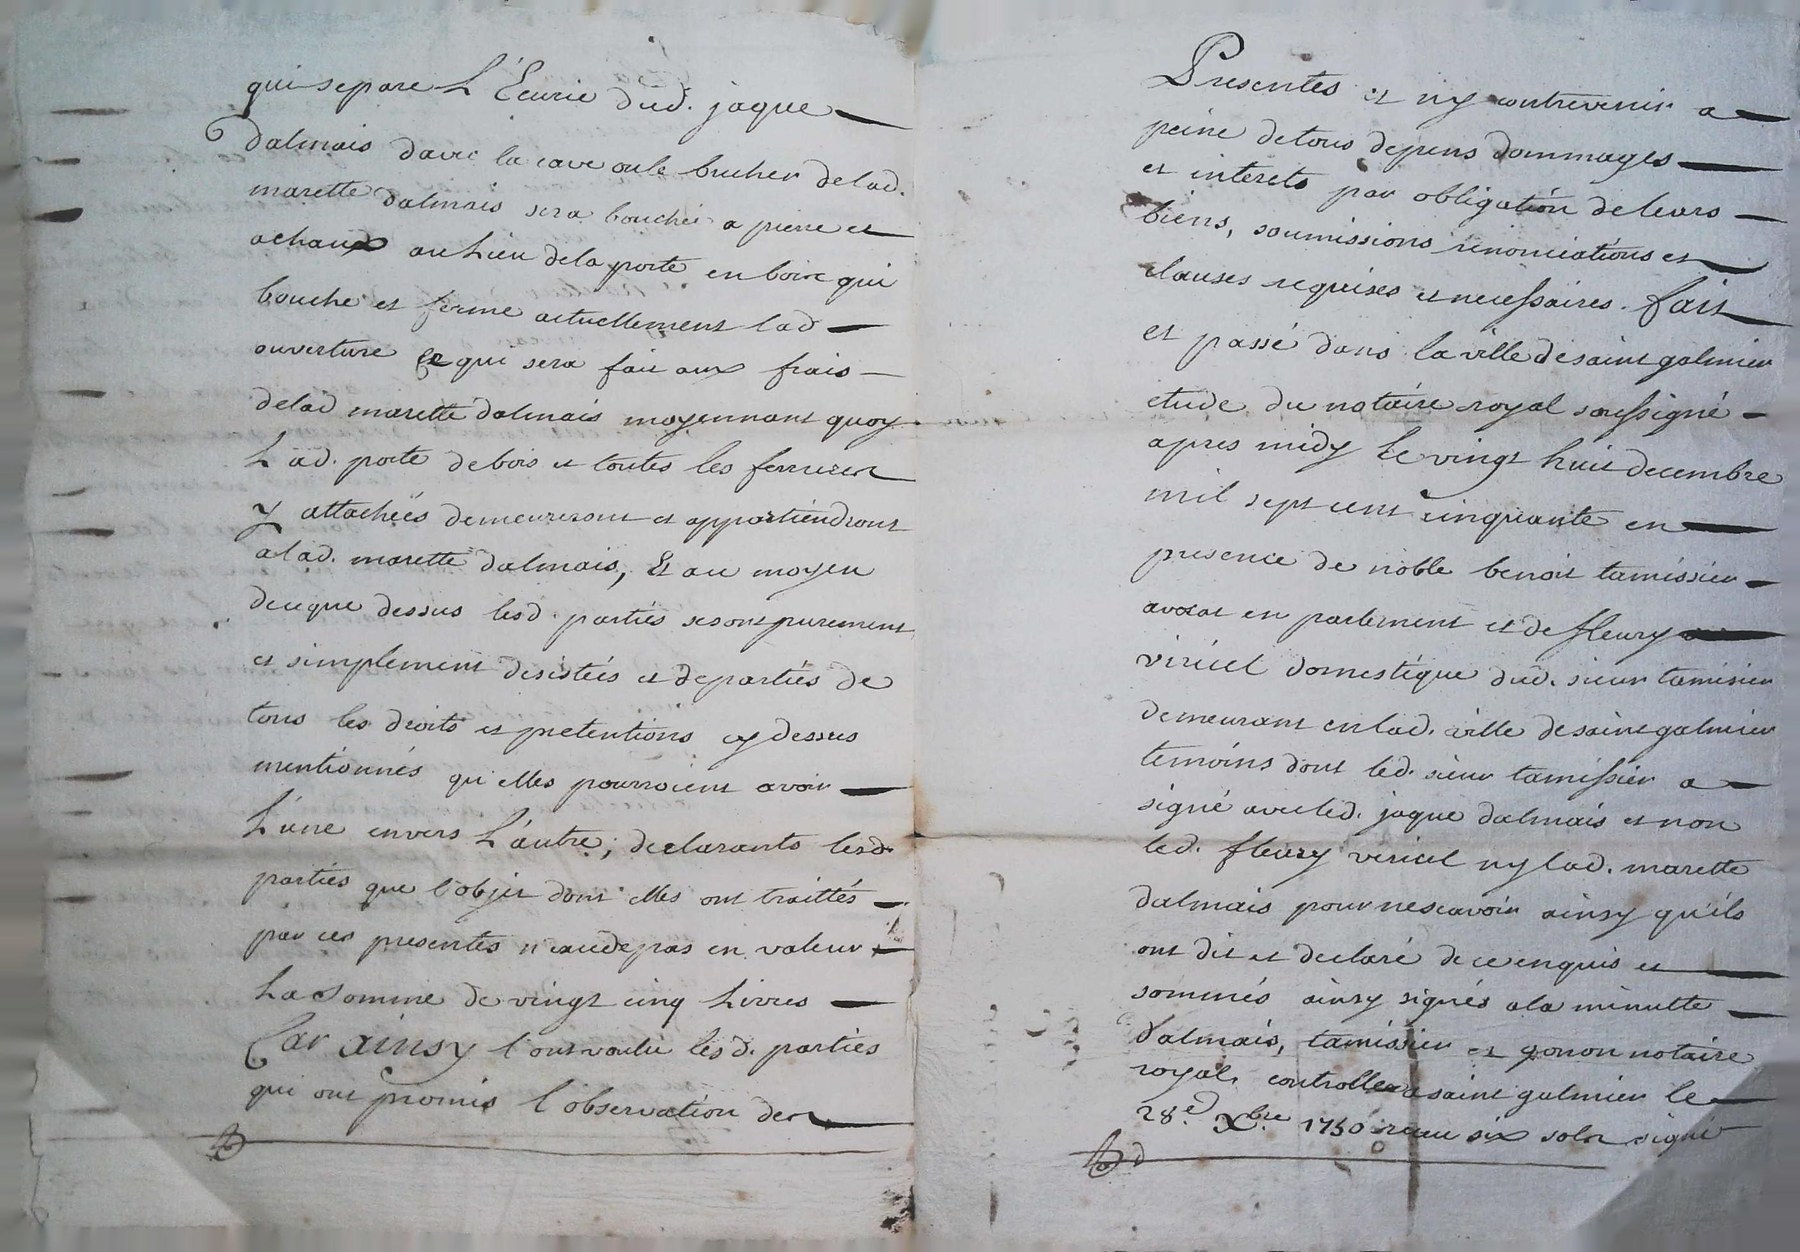 qui separe L'Ecurie dud. jaque
dalmais davec la cave oule bucher delad.
marette dalmais sera bouchée a pierre et
achaux au Lieu dela porte en boix qui
bouche et ferme actuellement lad
ouverture ce qui sera fait aux frais
delad marette dalmais moyennant quoy
Lad. porte debois et toutes les ferrures
y attachées demeureront et appartiendront
alad. marette dalmais, Et au moyen
deceque dessus lesd. partiés sesont purement
et simplement desistéés et departiés de
tous les droits et pretentions cy dessus
mentionnés qu'elles pourroient avoir
L'une envers L'autre, declarants lesd.
partiés que l'objet dont elles ont traittés
par ces presentes n'excede pas en valeur
La Somme de vingt cinq Livres
Car ainsy l'ont voulu lesd. parties
qui ont promis l'observation des
Presentes et ny contrevenir a
peine detous depens dommages
et interets par obligation deleurs
biens, soumissions renonciations et
clauses requises et necessaires. fait
et passé dans la ville desaint galmier
etude du notaire royal soussigné
apres midy Le vingt huit decembre
mil sept cent cinquante en
presence de noble benoit tamissier
avocat en parlement et de fleury
viricel domestique dud. sieur tamisier
demeurant enlad. ville desaint galmier
temoins dont led. sieur tamissier a
signé avecled. jaque dalmais et non
led. fleury viricel ny lad. marette
dalmais pour nescavoir ainsy qu'ils
ont dit et declaré dece enquis et
sommés ainsy signés ala minutte
Dalmais, tamissier et gonon notaire
royal. controllé asaint galmier le
28.e Xbre 1750 recu six sols signé